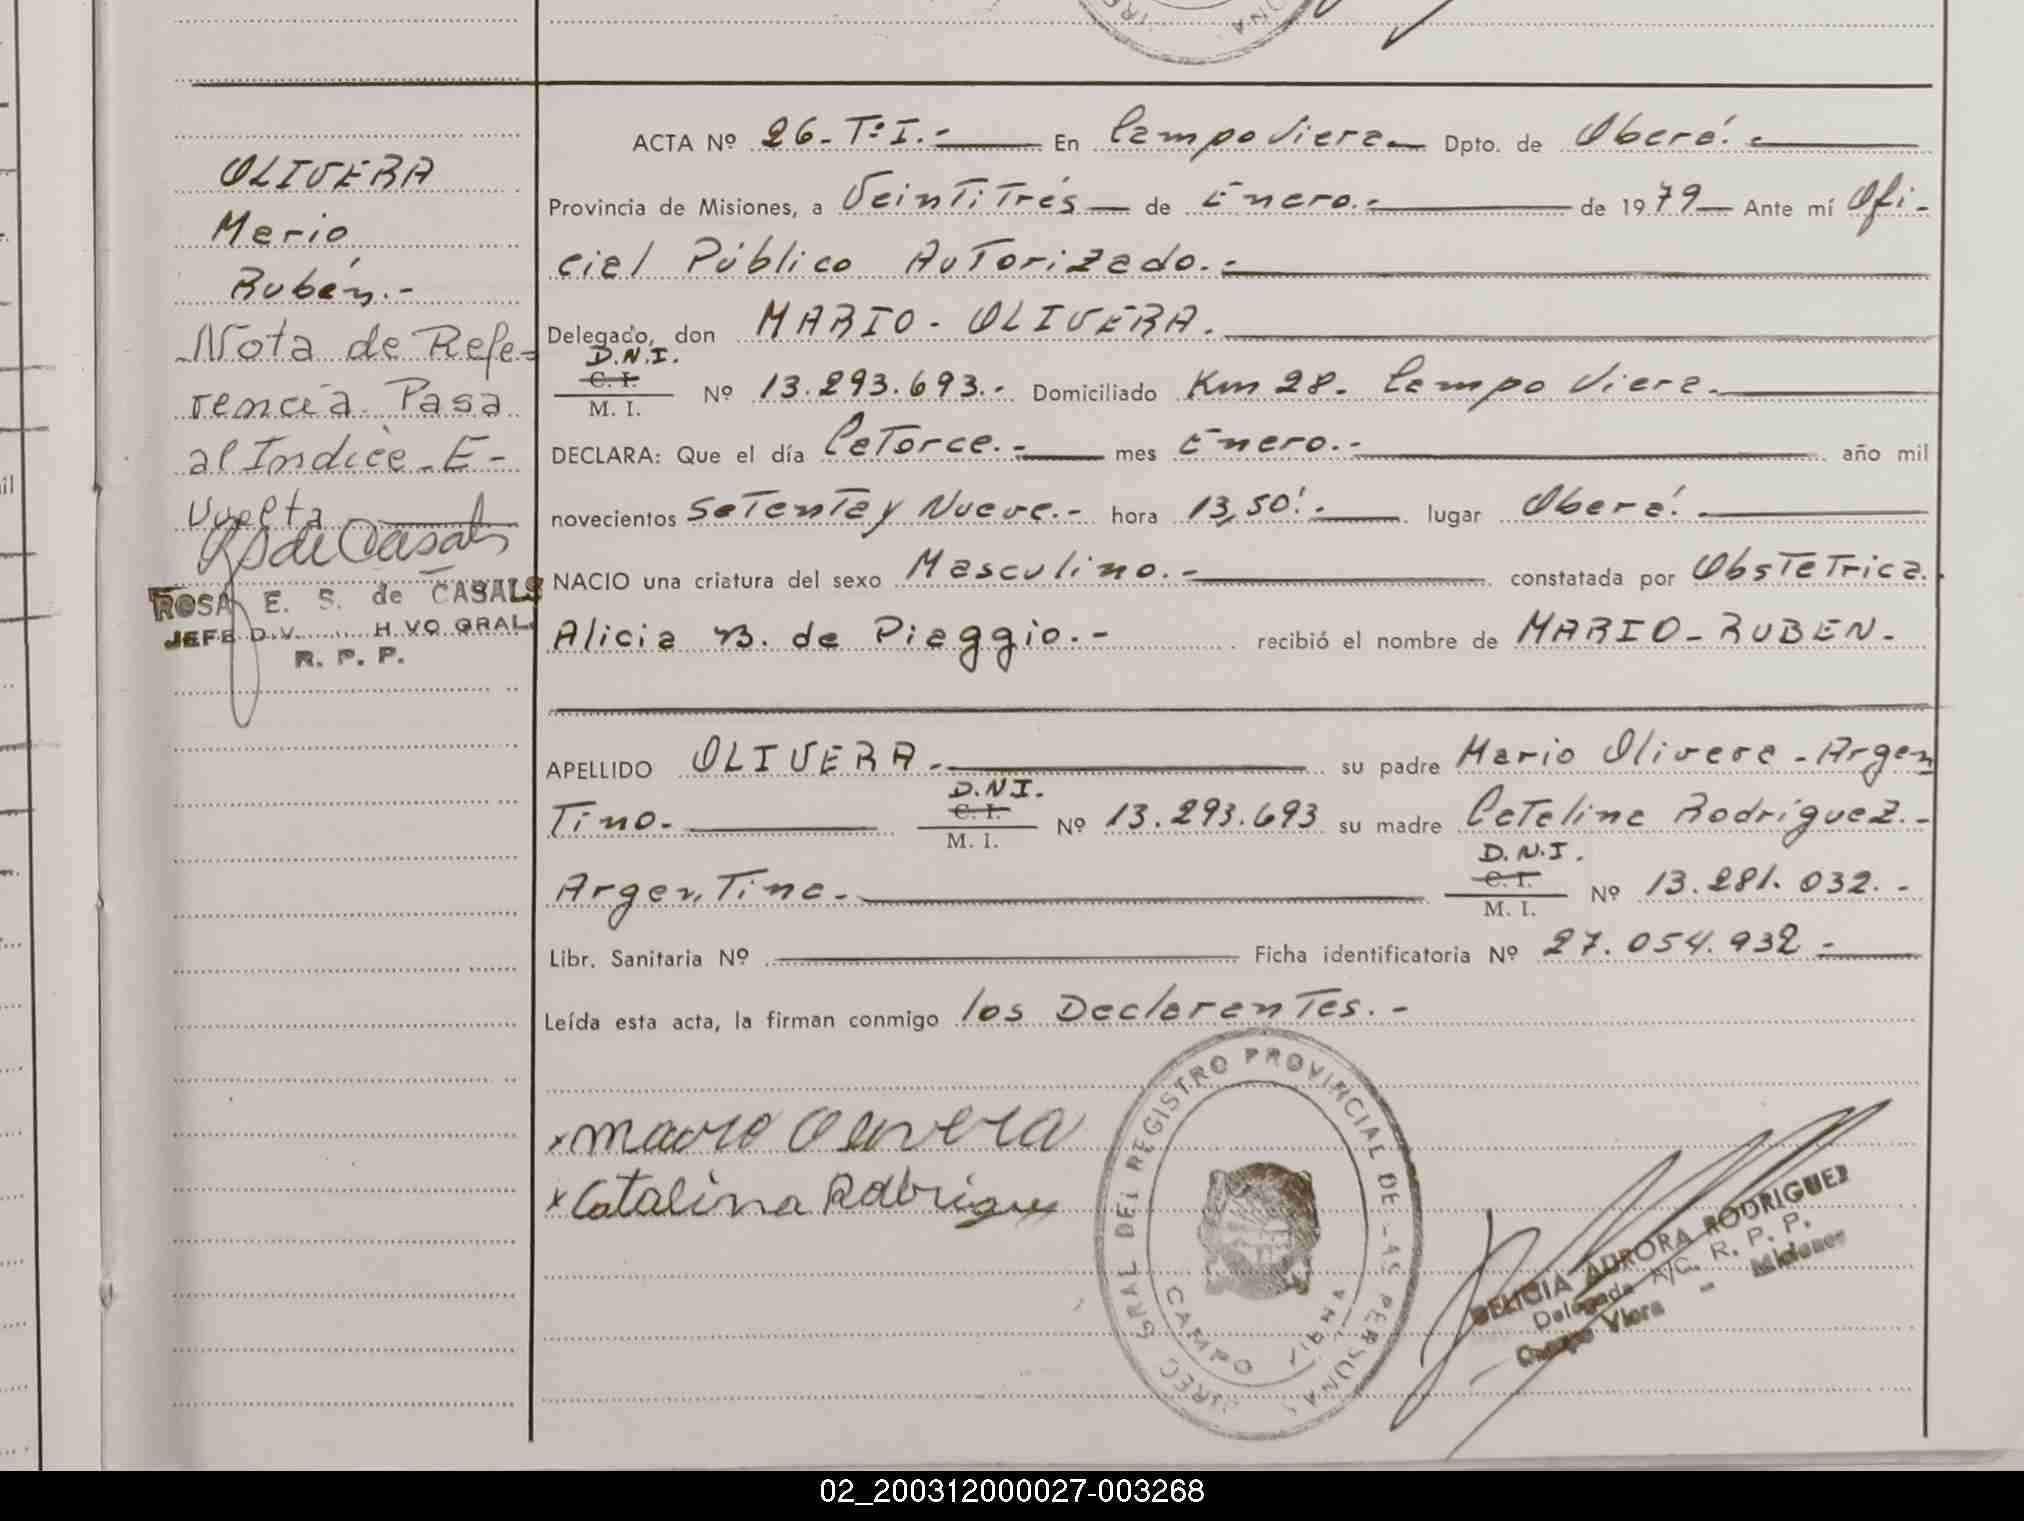 OLIVERA
Mario
Rubén.-
Nota de Refe-
rencia Pasa
al Indice-E-
Vuelta
ROSA E. S. de CASALS
R. P. P.
ACTA Nº 26-Tº I.- En Campo Viera Dpto. de Oberá.-
Provincia de Misiones, a Veintitrés de Enero.- de 1979 Ante mí Ofi-
cial Público Autorizado.-
Delegado, don MARIO - OLIVERA.
D.N.I.
C. I.
M. I. Nº 13.293.693.- Domiciliado Km 28- Campo Viera-
DECLARA: Que el día Catorce.- mes Enero.- año mil
novecientos Setenta y Nueve.- hora 13,50'.- lugar Oberá.-
NACIO una criatura del sexo Masculino.- constatada por Obstetrica.
Alicia B. de Piaggio.- recibió el nombre de MARIO-RUBEN-
APELLIDO OLIVERA.- su padre Mario Olivera - Argen
tino.- D.N.I.
C. I.
M. I. Nº 13.293.693 su madre Catalina Rodríguez.-
Argentina.- D.N.I.
C. I.
M. I. Nº 13.281.032.-
Libr. Sanitaria Nº Ficha identificatoria Nº 27.054.932-
Leída esta acta, la firman conmigo los Declarantes.-
x Mario Olivera
x Catalina Rodrigues
DIREC. GRAL DEL REGISTRO PROVINCIAL DE LAS PERSONAS
CAMPO VIERA
DELICIA AURORA RODRIGUEZ
Delegada A/C. R. P. P.
Campo Viera - Misiones
02_200312000027-003268